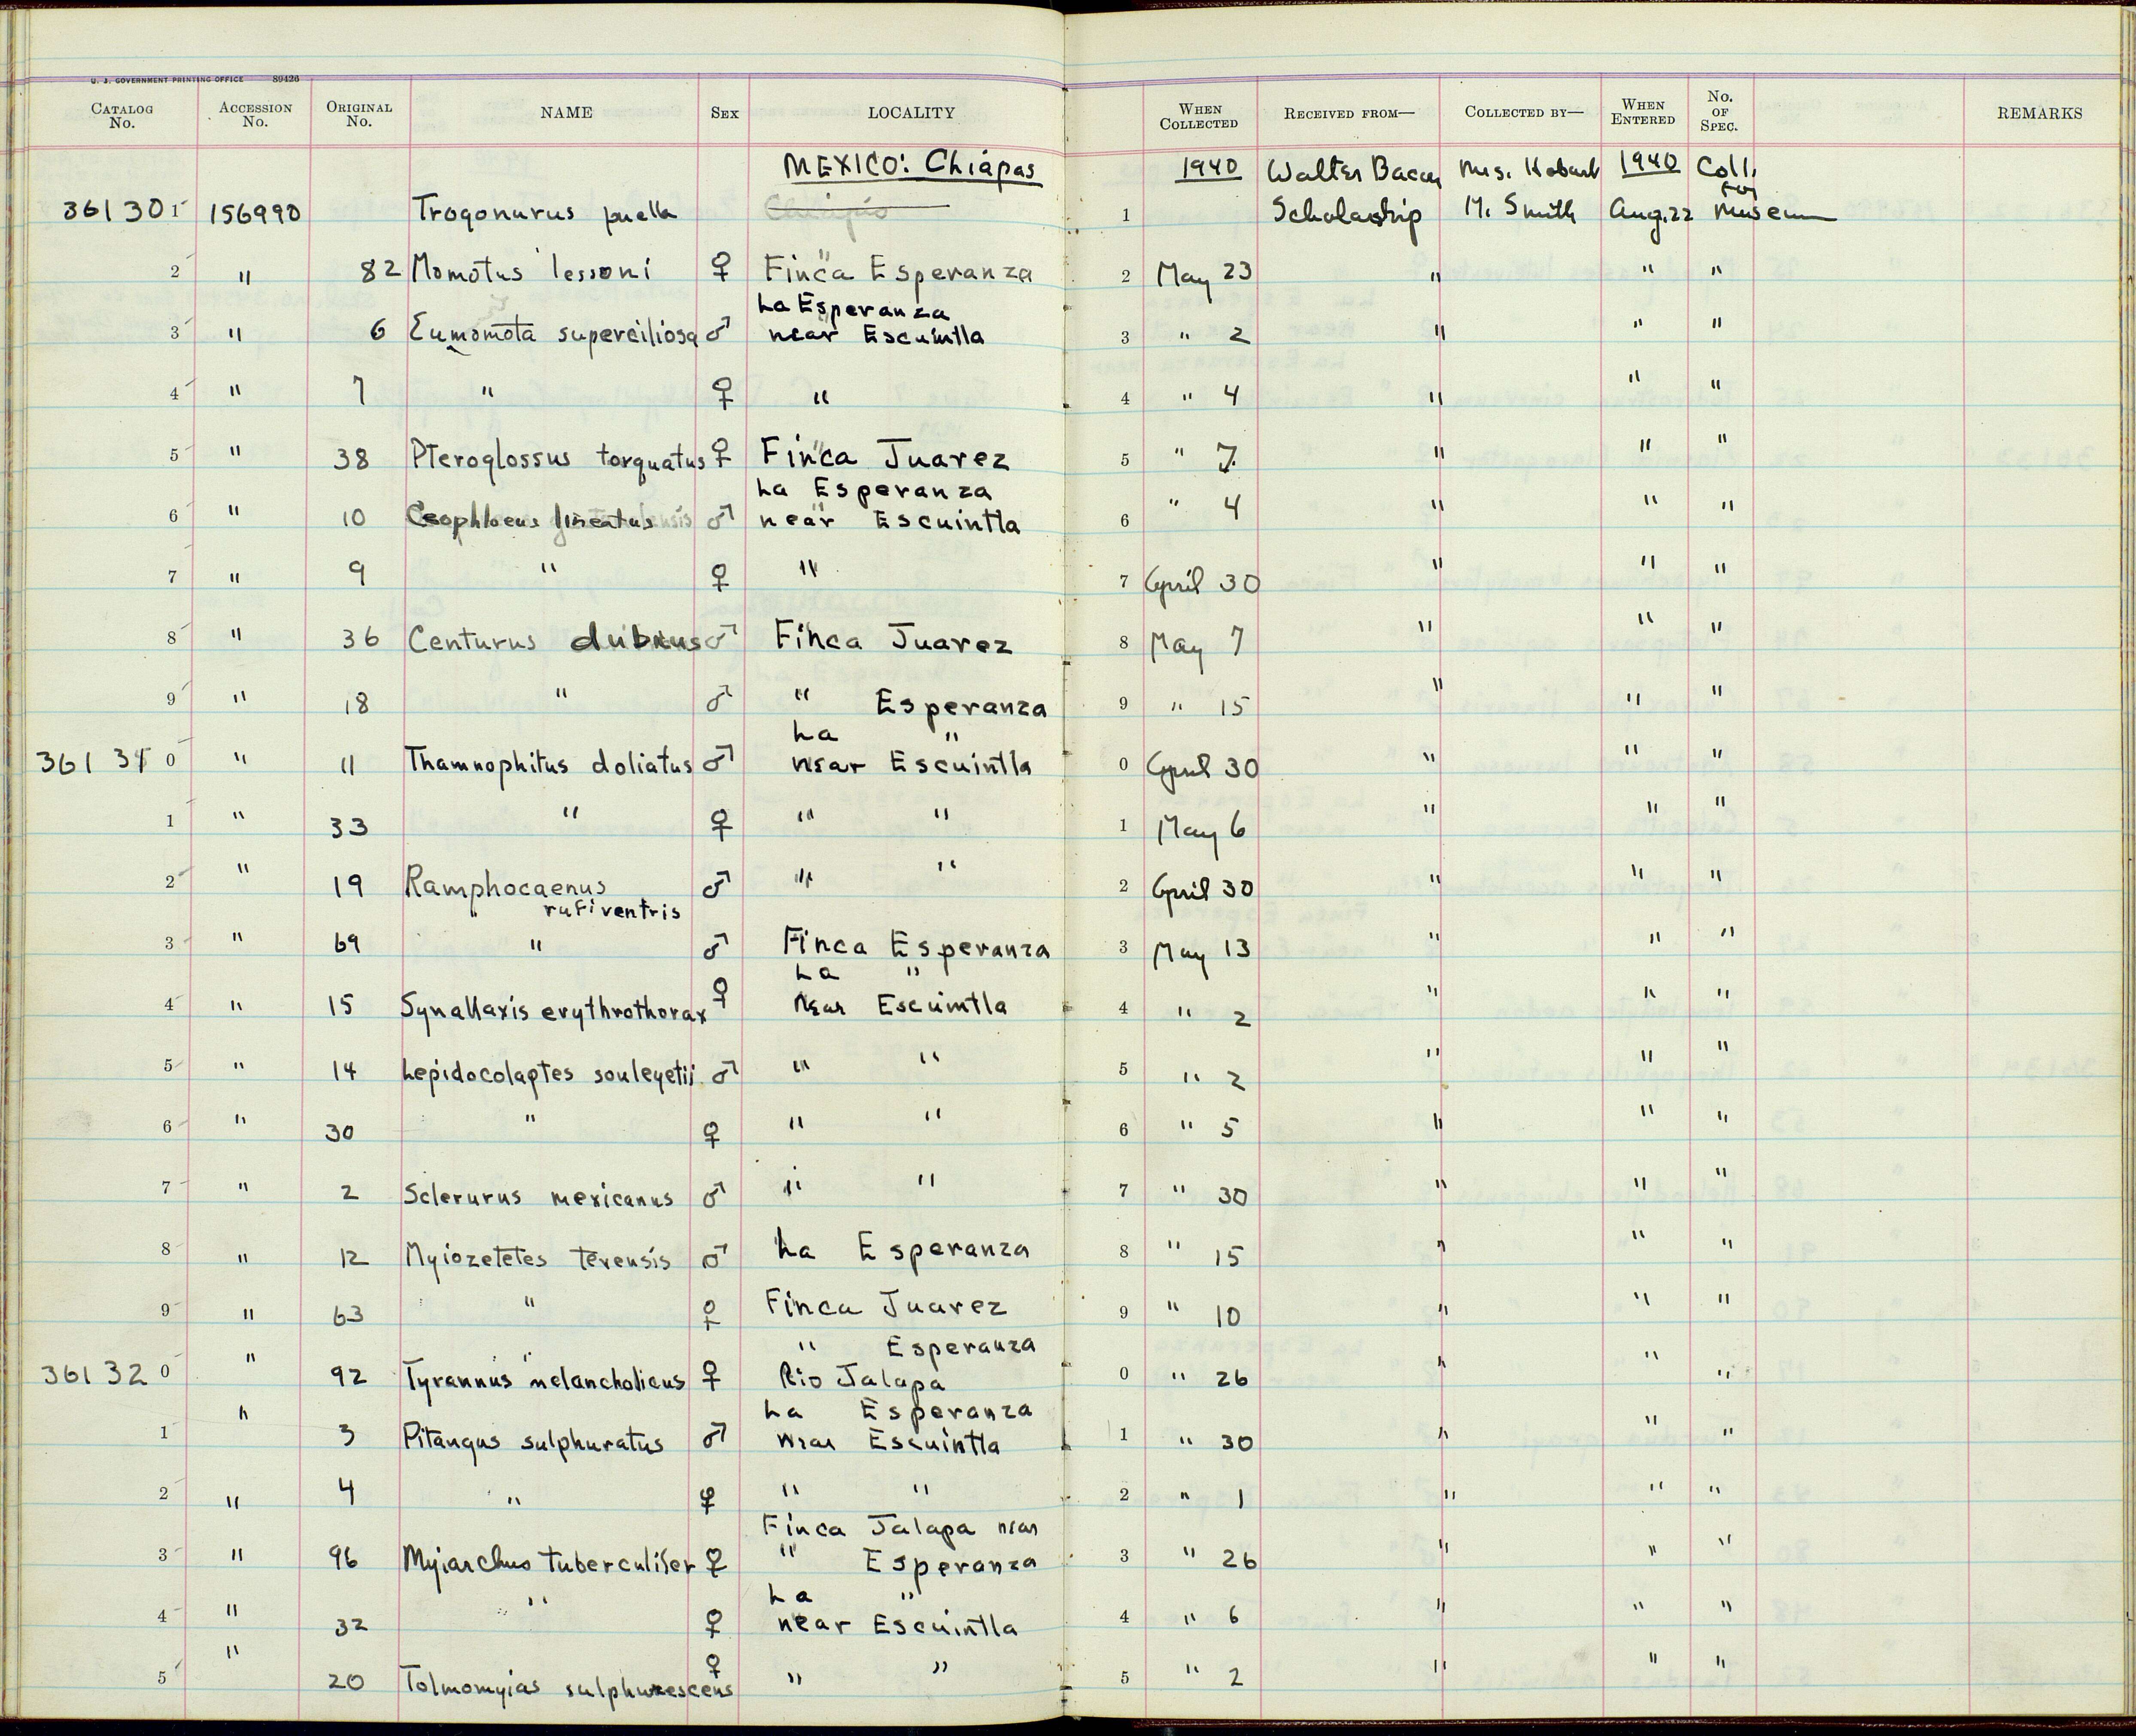 U. S. GOVERNMENT PRINTING OFFICE 89426
CATALOG No. ACCESSION No. ORIGINAL No. NAME SEX LOCALITY WHEN COLLECTED RECEIVED FROM— COLLECTED BY— WHEN ENTERED No. OF SPEC. REMARKS
MEXICO: Chiapas 1940 Walter Bacon Mrs. Hobart 1940 Coll. for
36130 1 156990 Trogonurus puella 1 Scholarship M. Smith Aug. 22 Museum
2 " 82 Momotus lessoni ♀ Finca Esperanza 2 May 23 " " "
La Esperanza
3 " 6 Eumomota superciliosa ♂ near Escuintla 3 " 2 " " "
4 " 7 " ♀ " 4 " 4 " " "
5 " 38 Pteroglossus torquatus ♀ Finca Juarez 5 " 7 " " "
La Esperanza
6 " 10 Ceophloeus lineatus ♂ near Escuintla 6 " 4 " " "
7 " 9 " ♀ " 7 April 30 " " "
8 " 36 Centurus dubius ♂ Finca Juarez 8 May 7 " " "
9 " 18 " ♂ " Esperanza 9 " 15 " " "
La "
36131 0 " 11 Thamnophilus doliatus ♂ near Escuintla 0 April 30 " " "
1 " 33 " ♀ " " 1 May 6 " " "
2 " 19 Ramphocaenus ♂ " " 2 April 30 " " "
rufiventris
3 " 69 " ♂ Finca Esperanza 3 May 13 " " "
La "
4 " 15 Synallaxis erythrothorax ♀ Near Escuintla 4 " 2 " " "
5 " 14 Lepidocolaptes souleyetii ♂ " " 5 " 2 " " "
6 " 30 " ♀ " " 6 " 5 " " "
7 " 2 Sclerurus mexicanus ♂ " " 7 " 30 " " "
8 " 12 Myiozetetes texensis ♂ La Esperanza 8 " 15 " " "
9 " 63 " ♀ Finca Juarez 9 " 10 " " "
" Esperanza
36132 0 " 92 Tyrannus melancholicus ♀ Rio Jalapa 0 " 26 " " "
La Esperanza
1 " 3 Pitangus sulphuratus ♂ near Escuintla 1 " 30 " " "
2 " 4 " ♀ " " 2 " 1 " " "
Finca Jalapa near
3 " 96 Myiarchus tuberculifer ♀ " Esperanza 3 " 26 " " "
La "
4 " 32 " ♀ near Escuintla 4 " 6 " " "
5 " 20 Tolmomyias sulphurescens ♀ " " 5 " 2 " " "